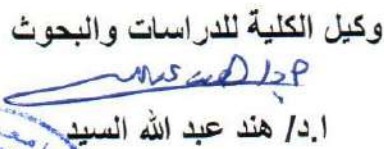 وكيل الكلية للدراسات والبحوث
ا.د/ هند عبد الله السيد